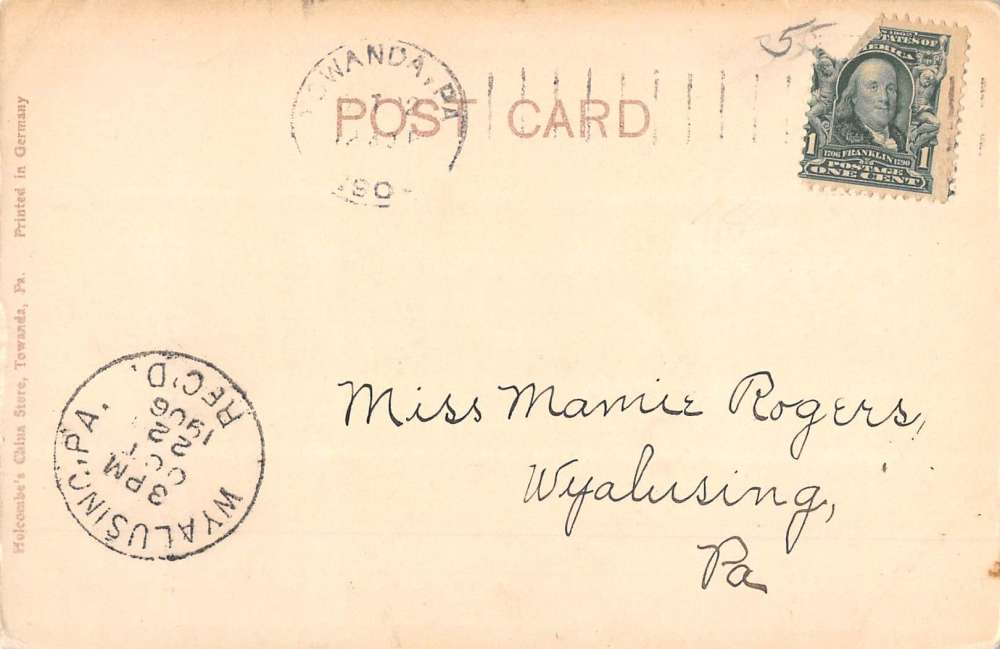 TOWANDA, PA
190
POST CARD
55
STATES OF
AMERICA
1 1706 FRANKLIN 1790 1
POSTAGE
ONE CENT
Miss Mamie Rogers,
Wyalusing,
Pa
WYALUSING, PA.
3 PM
OCT
22
1906
REC'D.
Holcombe's China Store, Towanda, Pa. Printed in Germany